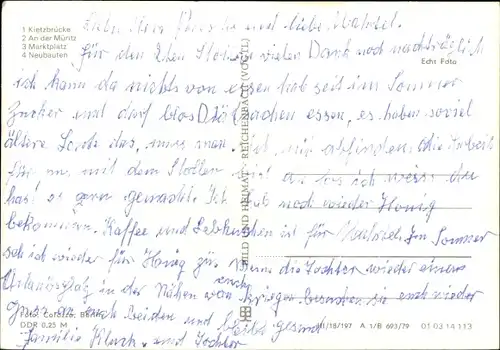 1 Kietzbrücke
2 An der Müritz
3 Marktplatz
4 Neubauten
Echt Foto
Liebe Frau und liebe
für den Stollen vielen Dank noch nachträglich
ich kann da nichts von essen hab seit im Sommer
Zucker und darf blos Diätsachen essen, es haben soviel
ältere Leute das, mus man sich mit abfinden, die Arbeit
für uns mit dem Stollen und
hast es gern gemacht. Ich hab noch wieder Honig
bekommen. Kaffee und Lebkuchen ist für Im Sommer
seh ich wieder für Honig zu. Wenn die Tochter wieder einen
Urlaubsplatz in der Nähen von euch kriegen besuchen sie euch wieder
Gruss an euch beiden und bleibt gesund
Familie und Tochter
BILD UND HEIMAT · REICHENBACH (VOGTL)
Foto:
DDR 0,25 M
A 1/B 693/79
01 03 14 113